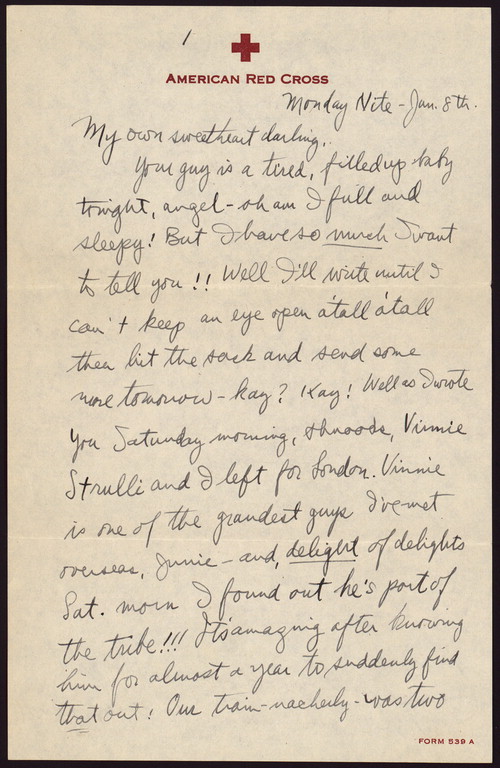 1
AMERICAN RED CROSS
Monday Nite - Jan. 8th.
My own sweetheart darling,
Your guy is a tired, filled up baby
tonight, angel - oh am I full and
sleepy! But I have so much I want
to tell you!! Well I'll write until I
can't keep an eye open a'tall a'tall
then hit the sack and send some
more tomorrow - kay? Kay! Well as I wrote
you Saturday morning, shnooks, Vinnie
Strulli and I left for London. Vinnie
is one of the grandest guys I've met
overseas, Junie - and, delight of delights
Sat. morn I found out he's part of
the tribe!!! It's amazing after knowing
him for almost a year to suddenly find
that out! Our train - nacherly - was two
FORM 539 A